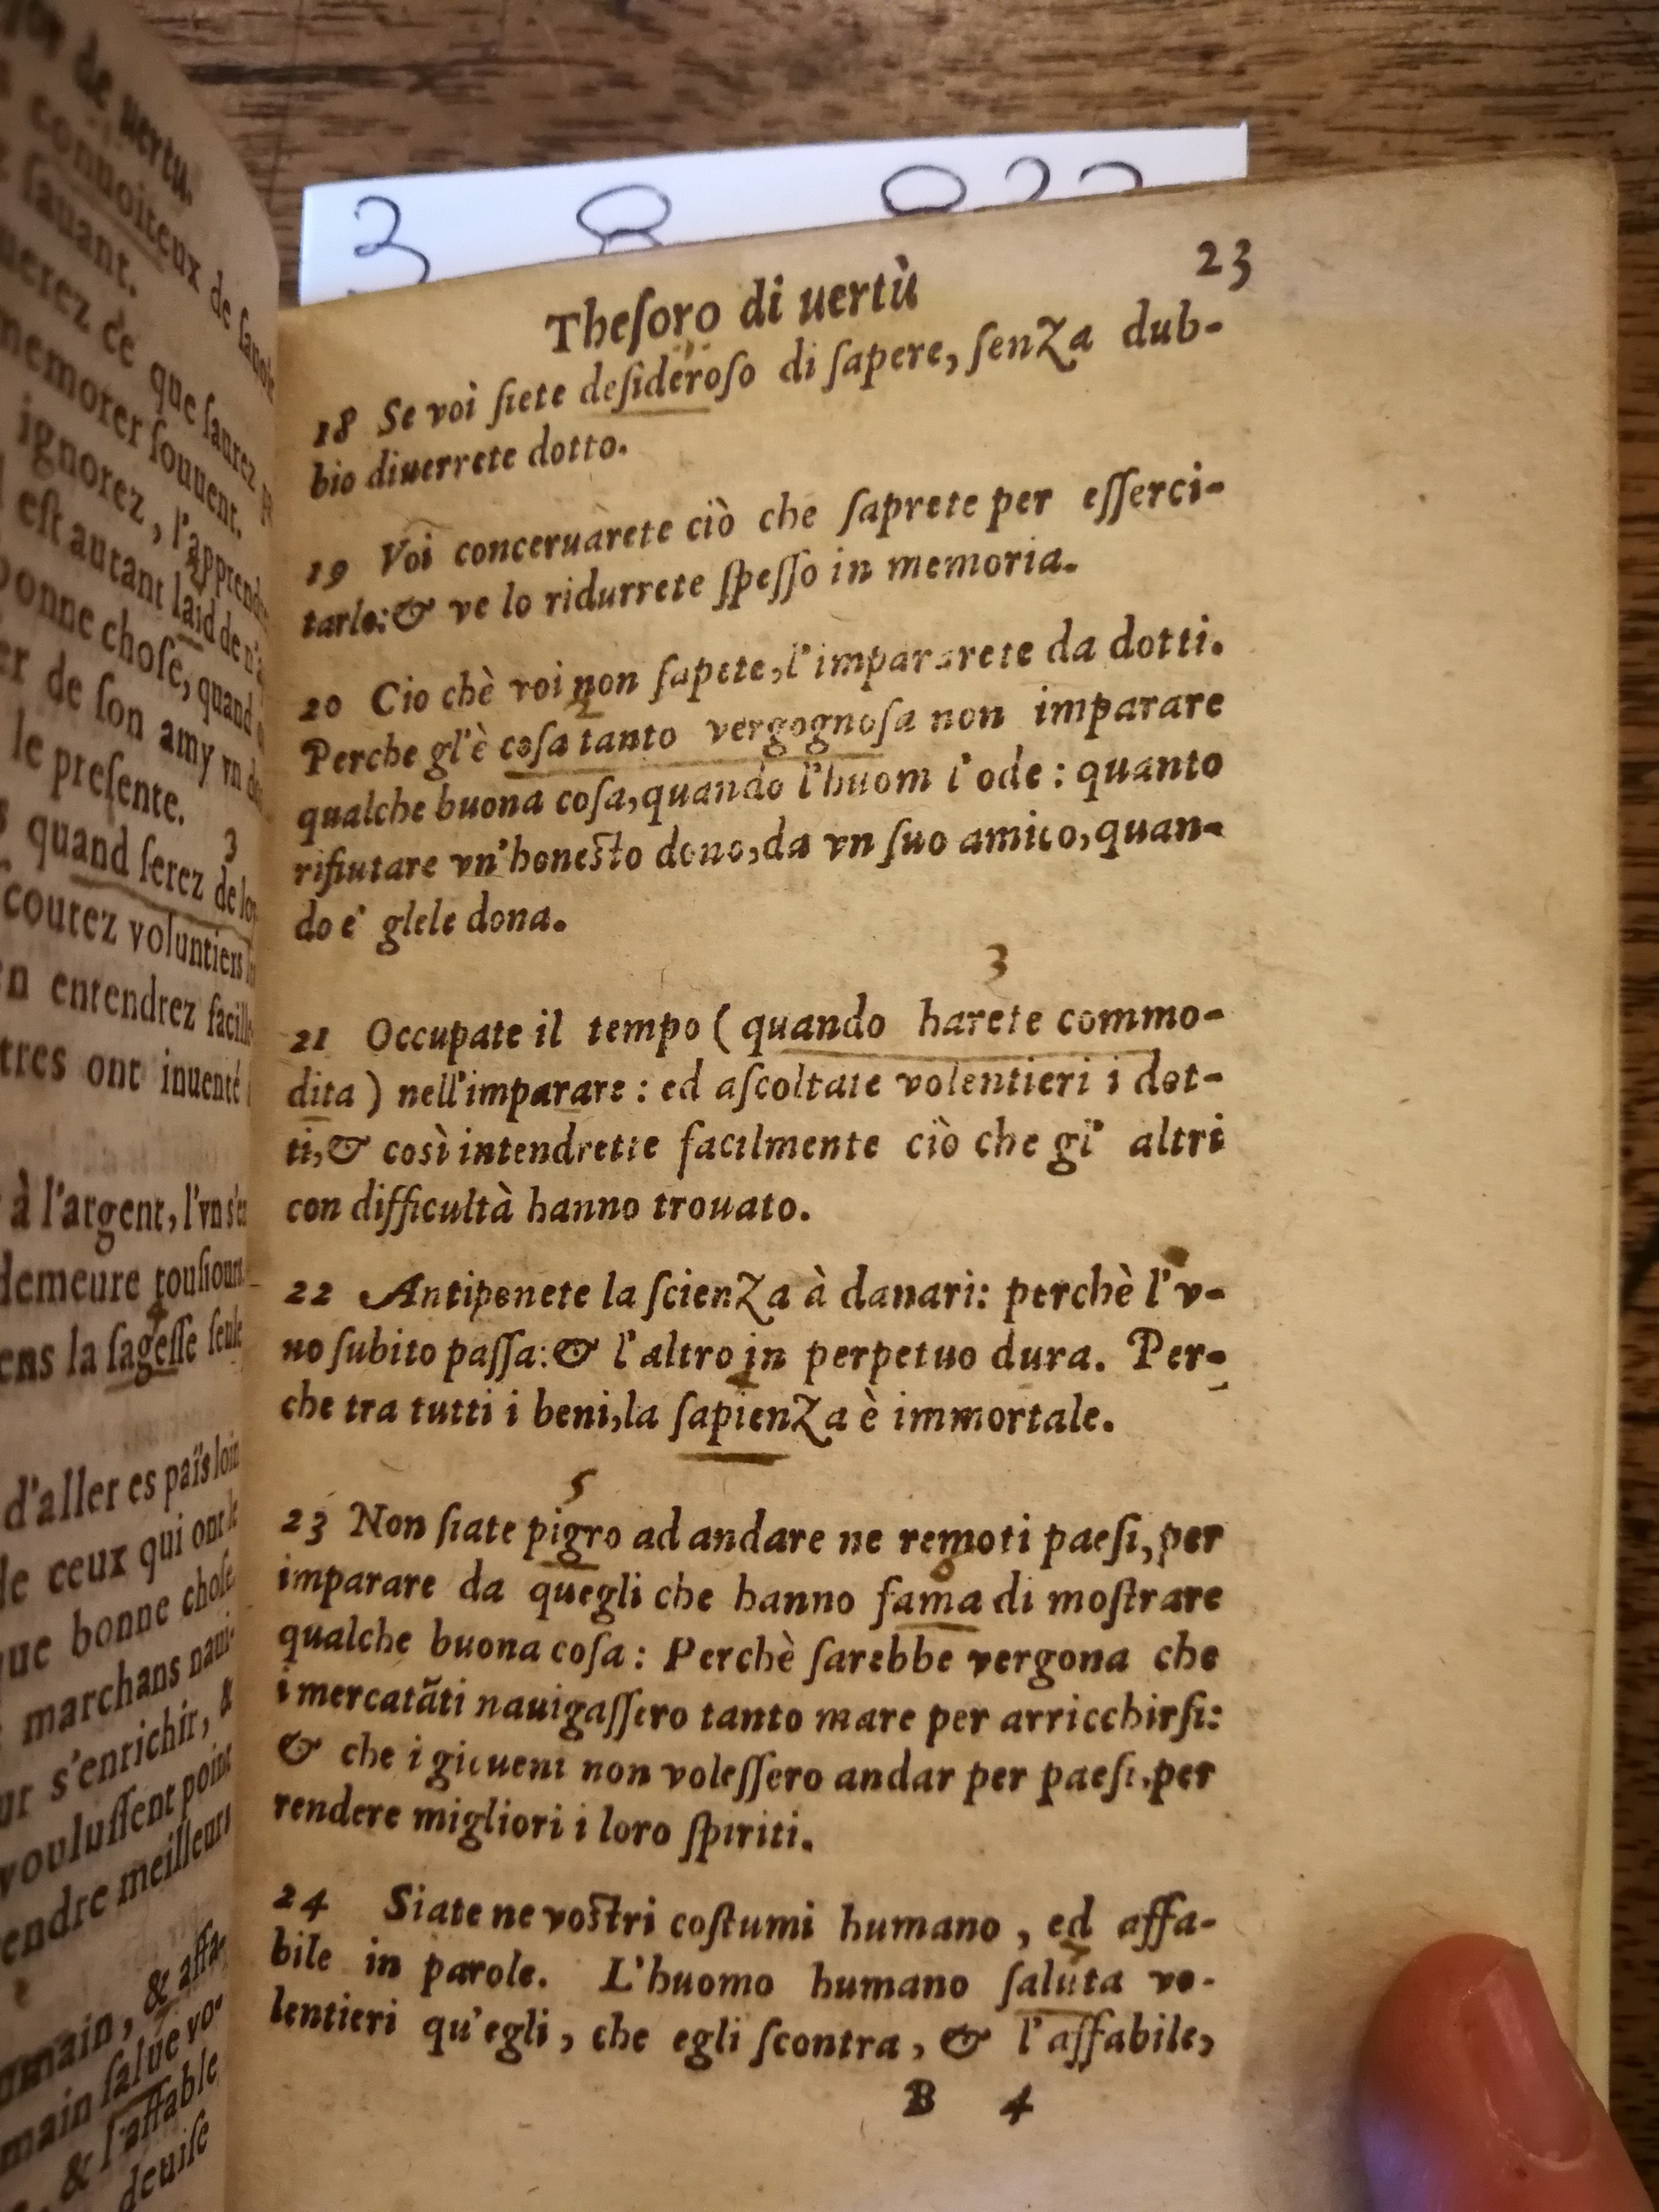 yor de uertu.
connoiteux de sauoir
sauant.
uerez ce que saurez
memorer souuent.
ignorez, l'apprend
est autant laid de n'a
bonne chose, quand
er de son amy vn do
le presente.
3
quand serez de lo
coutez voluntiers
n entendrez facill
tres ont inuenté
à l'argent, l'vn s'e
demeure tousiours
4
ens la sagesse seule
d'aller es païs loin
de ceux qui ont le
que bonne chose
marchans naui-
ur s'enrichir, &
voulussent point
endre meilleurs
umain, & affa-
main salue vo-
& l'affable
deuise
3 8
Thesoro di uertù
23
18 Se voi siete desideroso di sapere, senza dub-
bio diuerrete dotto.
19 Voi conceruarete ciò che saprete per esserci-
tarlo: & ve lo ridurrete spesso in memoria.
20 Cio chè voi non sapete, l'impararete da dotti.
Perche gl'è cosa tanto vergognosa non imparare
qualche buona cosa, quando l'huom l'ode: quanto
rifiutare vn'honesto dono, da vn suo amico, quan-
do e' glele dona.
3
21 Occupate il tempo ( quando harete commo-
dita ) nell'imparare: ed ascoltate volentieri i dot-
ti, & così intendrette facilmente ciò che gl' altri
con difficultà hanno trouato.
22 Antiponete la scienza à danari: perchè l'v-
no subito passa: & l'altro in perpetuo dura. Per-
che tra tutti i beni, la sapienza è immortale.
5
23 Non siate pigro ad andare ne remoti paesi, per
imparare da quegli che hanno fama di mostrare
qualche buona cosa: Perchè sarebbe vergona che
i mercatāti nauigassero tanto mare per arricchirsi:
& che i gioueni non volessero andar per paesi, per
rendere migliori i loro spiriti.
24 Siate ne vostri costumi humano, ed affa-
bile in parole. L'huomo humano saluta vo-
lentieri qu'egli, che egli scontra, & l'affabile,
B 4